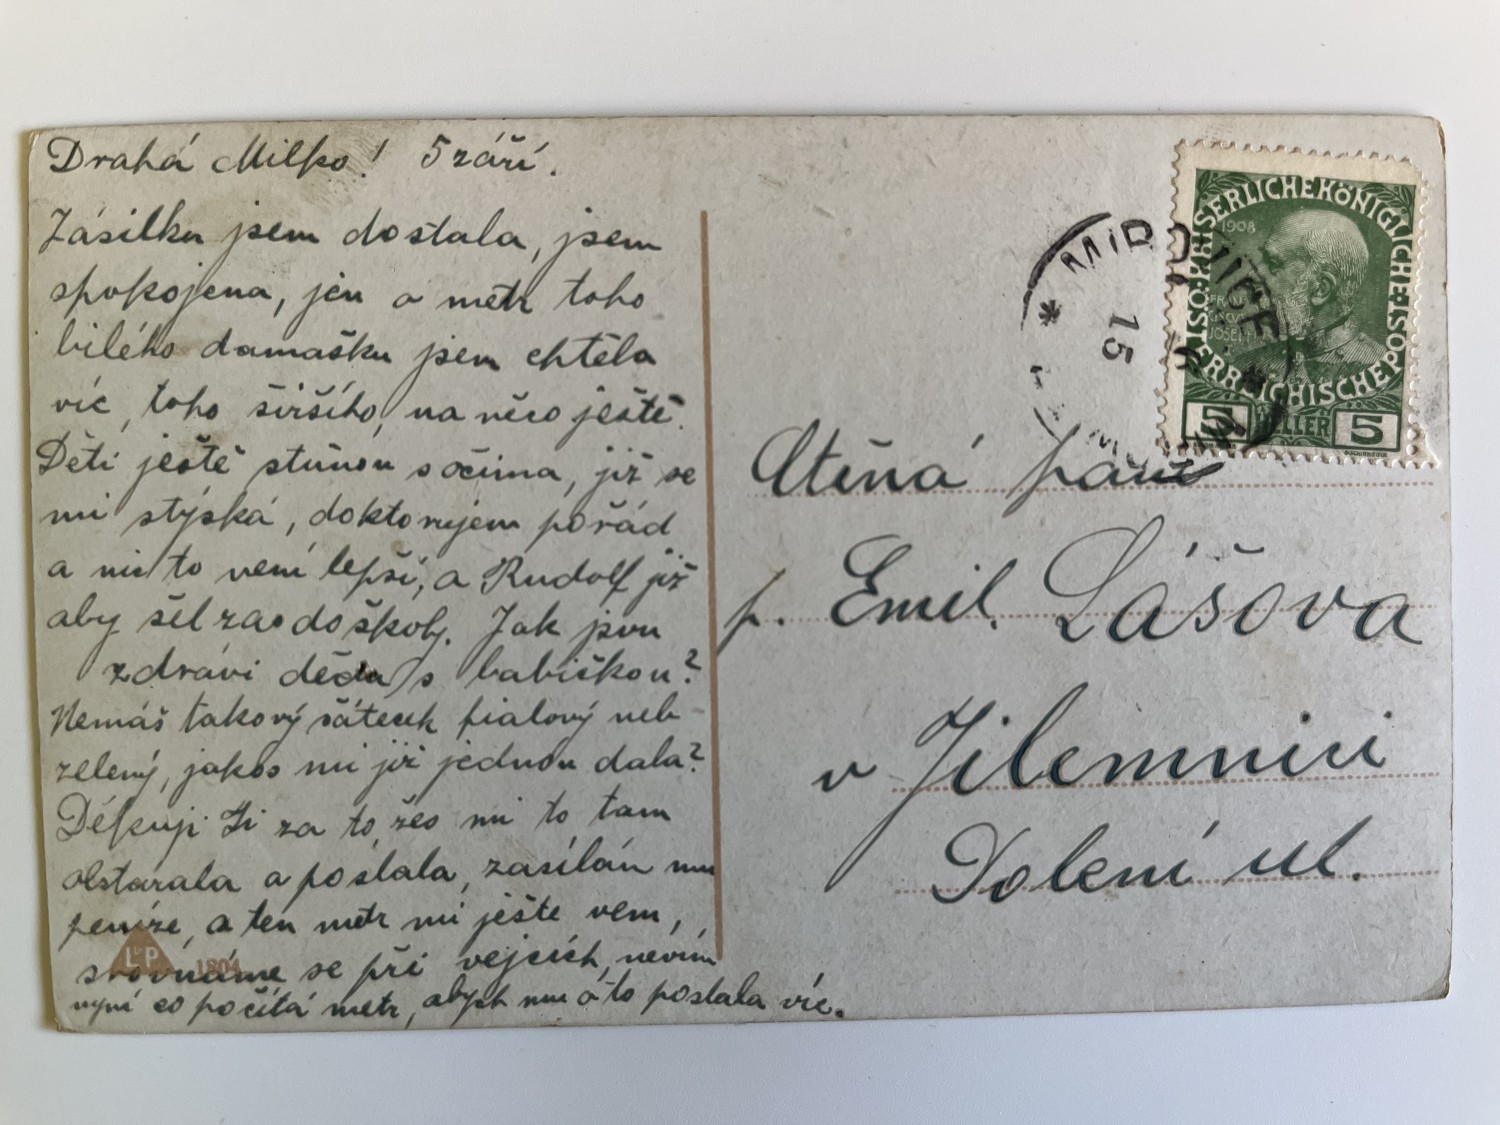 Drahá Milko! 5 září.
Zásilku jsem dostala, jsem
spokojena, jen o metr toho
bílého damašku jsem chtěla
víc, toho širšího, na něco ještě.
Děti ještě stůňou s očima, již se
mi stýská, doktorujem pořád
a nic to není lepší, a Rudolf již
aby šel zas do školy. Jak jsou
zdrávi děda s babičkou?
Nemáš takový šáteček fialový neb
zelený, jakos mi již jednou dala?
Děkuji Ti za to žes mi to tam
obstarala a poslala, zasílám mu
peníze, a ten metr mi ještě vem,
srovnáme se při vejcích, nevím
nyní co počítá metr, abych mu o to poslala víc.
L&P 1804
MIROVICE
15
KAISERLICHE KÖNIGLICHE ÖSTERREICHISCHE POST
1908
FRANZ JOSEF I
5 HELLER 5
Ctěná paní
p. Emil. Lášova
v Jilemnici
Dolení ul.